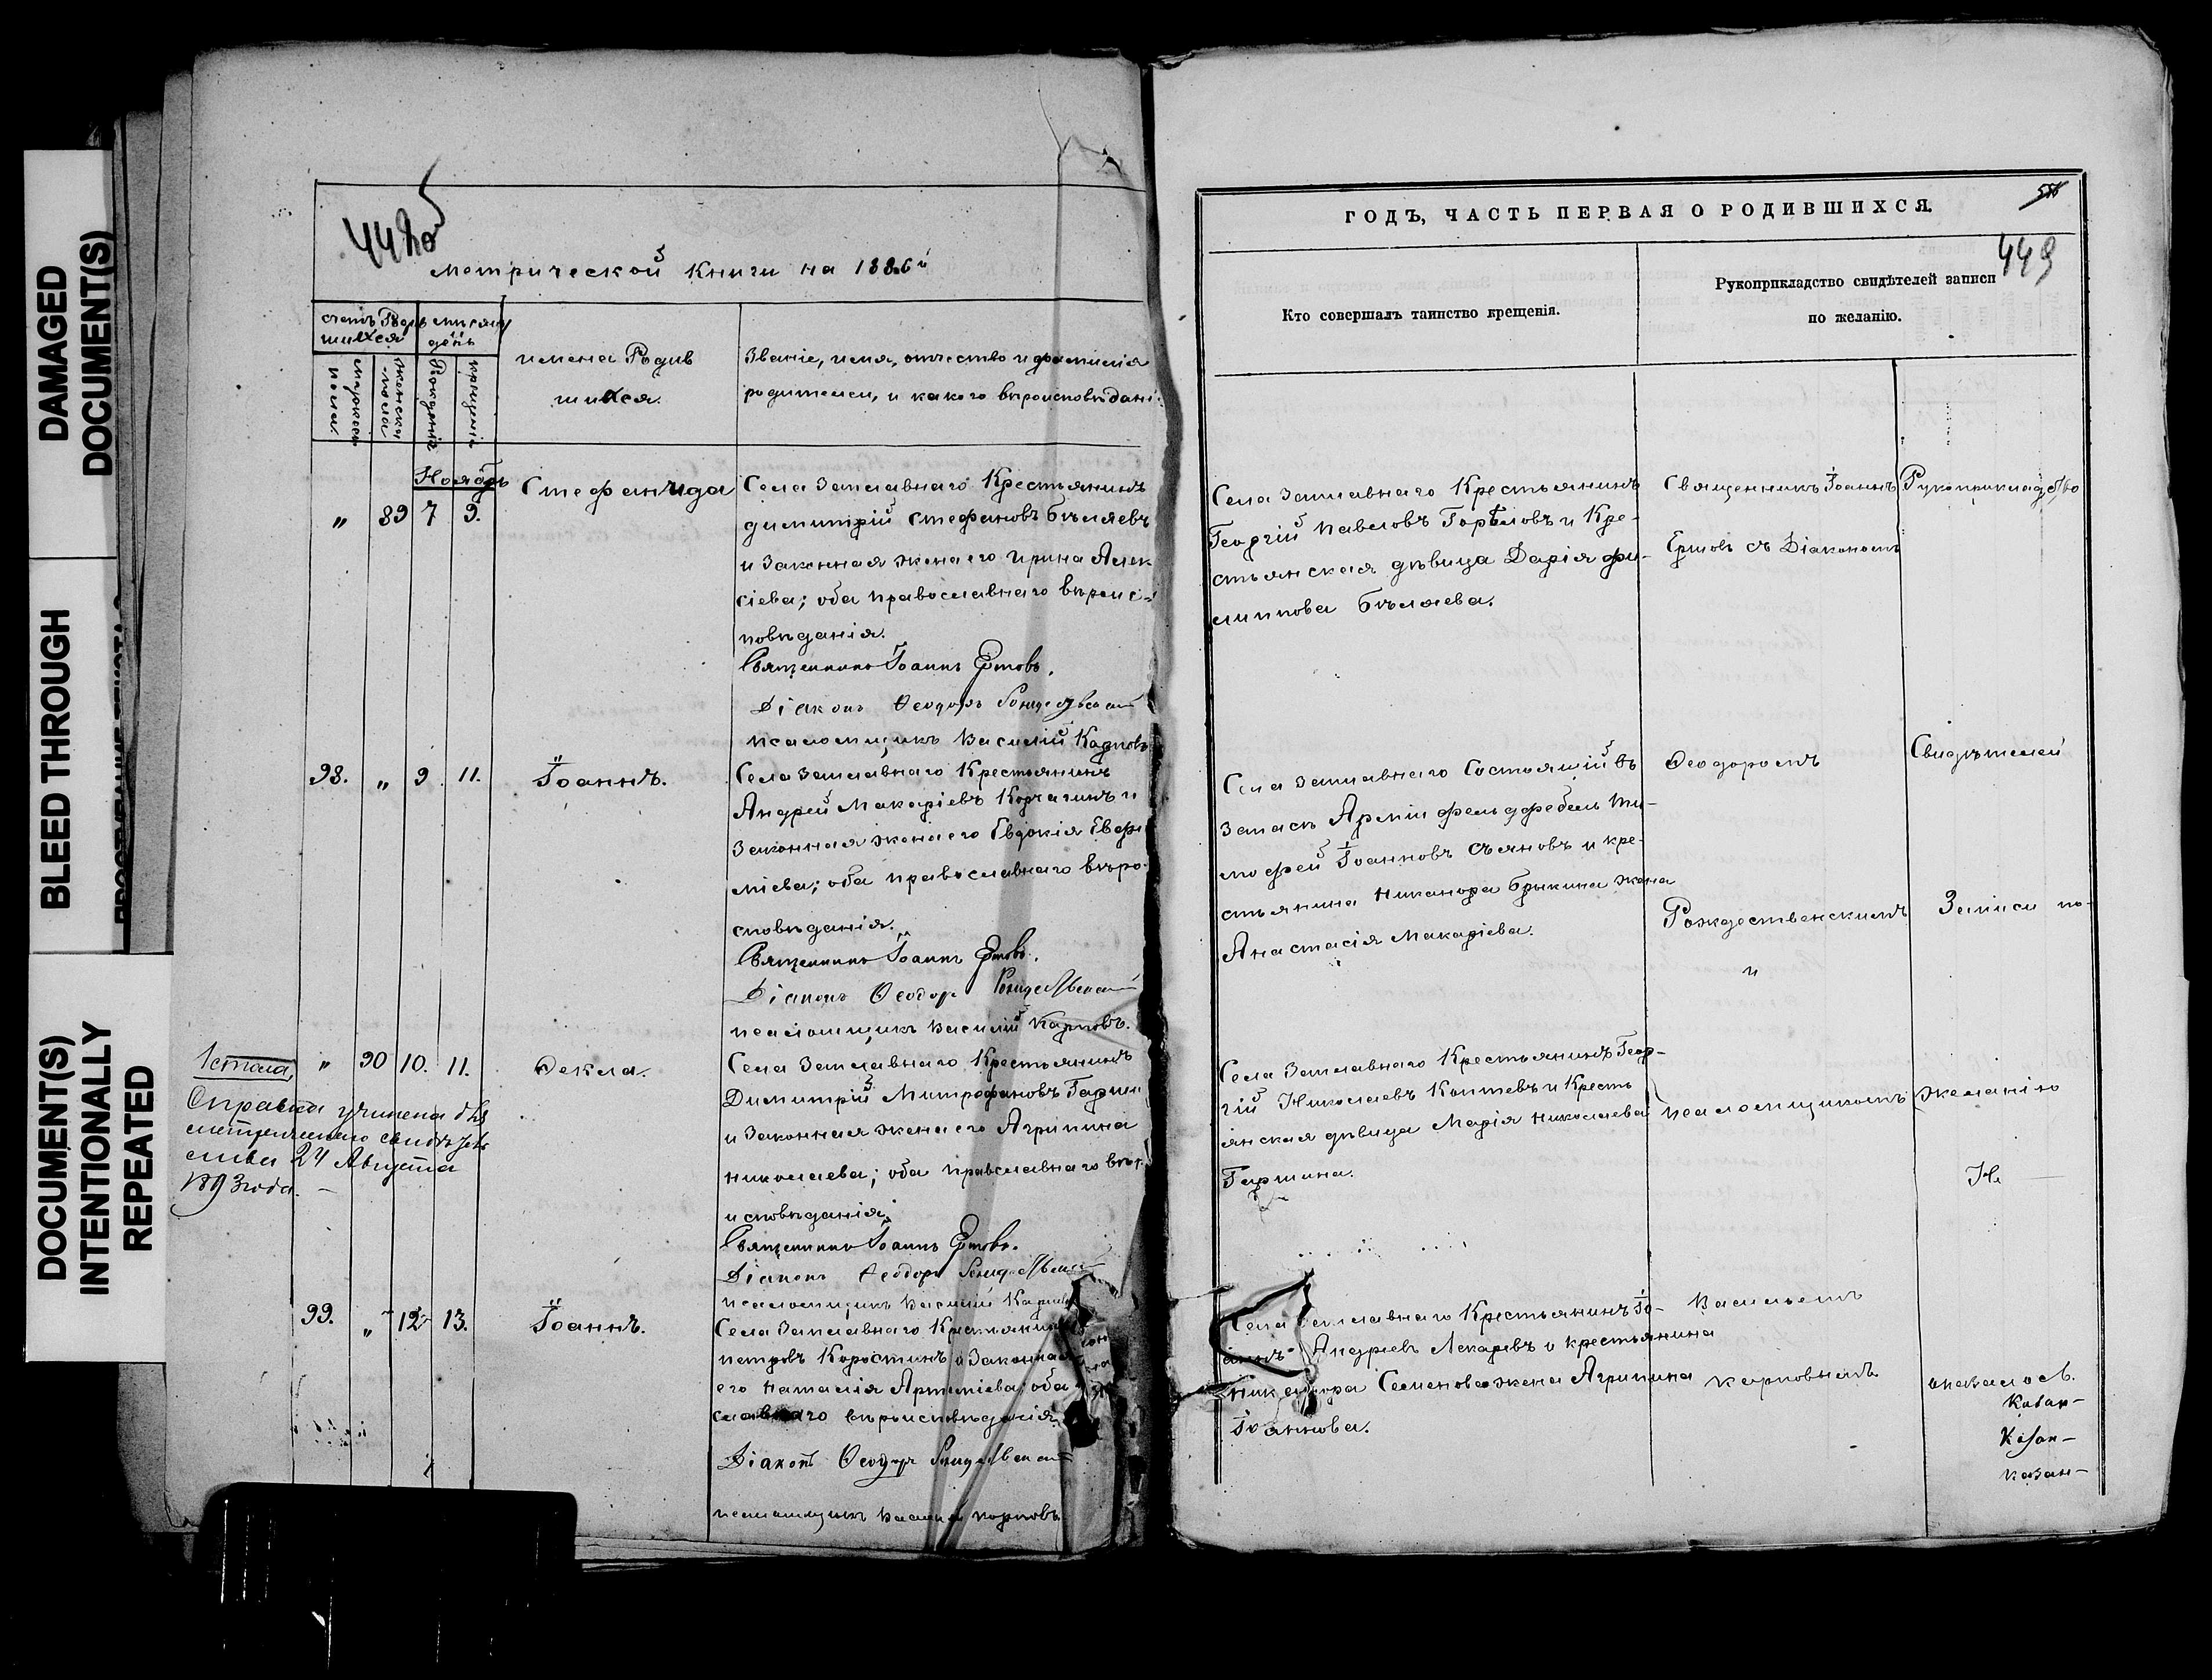 DAMAGED
DOCUMENT(S)
BLEED THROUGH
DOCUMENT(S)
INTENTIONALLY
REPEATED
метрической книги на 1886й
счетъ Родив мѣсяцъ
шихся день
мужеска пола.
женска пола
Рожденія
крещенія
имена Родив
шихся.
Званіе, имя, отчество и фамилія
родителей, и какого вѣроисповѣдані
Ноябрь
" 89 7 9.
Стефанида
Села Заплавнаго Крестьянинъ
димитрій Стефановъ Бѣляевъ
и Законная жена его Ирина Алек
сіева; оба православнаго вѣроис-
повѣданія.
Священникъ Іоаннъ Ершовъ.
Діаконъ Ѳеодоръ Рождественскій
псаломщикъ Василій Карповъ
98. " 9 11.
Іоаннъ.
Села Заплавнаго Крестьянинъ
Андрей Макаріевъ Корчагинъ и
Законная жена его Евдокія Евфи
міева; оба православнаго вѣро-
сповѣданія.
Священникъ Іоаннъ Ершовъ.
Діаконъ Ѳеодоръ Рождественскій
псаломщикъ Василій Карповъ.
" 90 10. 11.
Ѳекла.
Справка учинена для
метрическаго свидѣтель
ства 24 Августа
1893 года. –
Села Заплавнаго Крестьянинъ
Димитрій Митрофановъ Гаршин
и Законная жена его Агрипина
николаева; оба православнаго вѣр
исповѣданія.
Священникъ Іоаннъ Ершовъ.
Діаконъ Ѳеодоръ Рождественскій
псаломщикъ Василій Карповъ
99. " 12 13.
Іоаннъ.
Села Заплавнаго Крестьянинъ
петровъ Коростинъ и Законная
его Наталія Артеміева; оба
славнаго вѣроисповѣданія.
Діаконъ Ѳеодоръ Рождественскій
псаломщикъ Василій Карповъ
ГОДЪ, ЧАСТЬ ПЕРВАЯ О РОДИВШИХСЯ.
449
Кто совершалъ таинство крещенія.
Рукоприкладство свидѣтелей записи
по желанію.
Села Заплавнаго Крестьянинъ
Георгій Павловъ Горѣловъ и Кре-
стьянская дѣвица Дарія фи-
липпова Бѣляева.
Священникъ Іоаннъ
Ершовъ съ Діакономъ
Рукоприкладство
Села Заплавнаго Состоящій въ
запасѣ Арміи фельдфебель Ти-
мофей Іоанновъ Съяновъ и кре-
стьянина Никанора Брыкина жена
Анастасія Макаріева.
Ѳеодоромъ
Рождественскимъ
и
Свидѣтелей
Записи по-
Села Заплавнаго Крестьянинъ Геор-
гій Николаевъ Коптевъ и Кресть
янская дѣвица Марія Николаева
Гаршина.
псаломщикомъ
желанію
Не
Села Заплавнаго Крестьянинъ Іо-
аннъ Андріевъ Лекаревъ и крестьянина
Никанора Семенова жена Агрипина
Іоаннова.
Васильемъ
Карповымъ
оказалось.
Казан-
Казан-
казан-